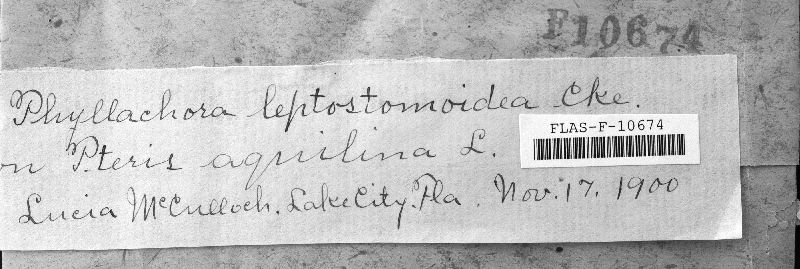 F10674
Phyllachora leptostomoidea Cke.
on Pteris aquilina L.
FLAS-F-10674
Lucia McCulloch. Lake City. Fla. Nov. 17. 1900